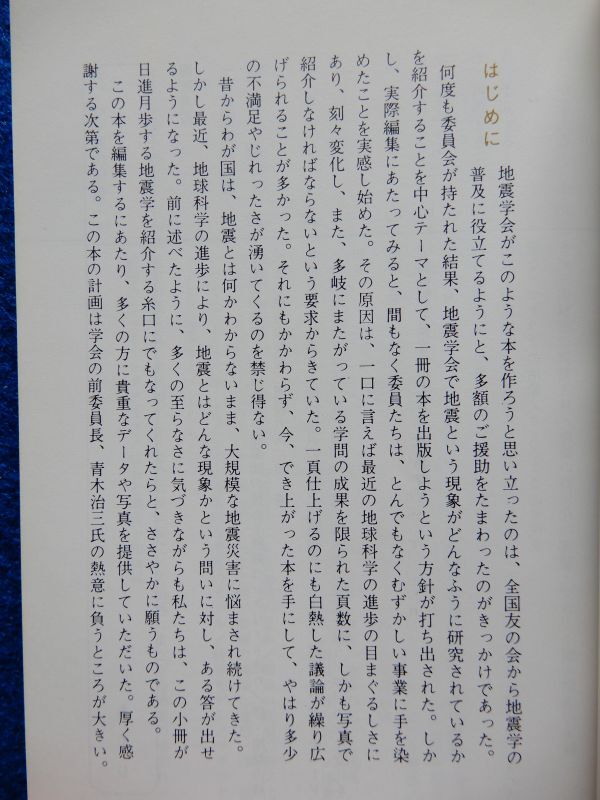 はじめに
地震学会がこのような本を作ろうと思い立ったのは、全国友の会から地震学の
普及に役立てるようにと、多額のご援助をたまわったのがきっかけであった。
何度も委員会が持たれた結果、地震学会で地震という現象がどんなふうに研究されているか
を紹介することを中心テーマとして、一冊の本を出版しようという方針が打ち出された。しか
し、実際編集にあたってみると、間もなく委員たちは、とんでもなくむずかしい事業に手を染
めたことを実感し始めた。その原因は、一口に言えば最近の地球科学の進歩の目まぐるしさに
あり、刻々変化し、また、多岐にまたがっている学問の成果を限られた頁数に、しかも写真で
紹介しなければならないという要求からきていた。一頁仕上げるのにも白熱した議論が繰り広
げられることが多かった。それにもかかわらず、今、でき上がった本を手にして、やはり多少
の不満足やじれったさが湧いてくるのを禁じ得ない。
昔からわが国は、地震とは何かわからないまま、大規模な地震災害に悩まされ続けてきた。
しかし最近、地球科学の進歩により、地震とはどんな現象かという問いに対し、ある答が出せ
るようになった。前に述べたように、多くの至らなさに気づきながらも私たちは、この小冊が
日進月歩する地震学を紹介する糸口にでもなってくれたらと、ささやかに願うものである。
この本を編集するにあたり、多くの方に貴重なデータや写真を提供していただいた。厚く感
謝する次第である。この本の計画は学会の前委員長、青木治三氏の熱意に負うところが大きい。